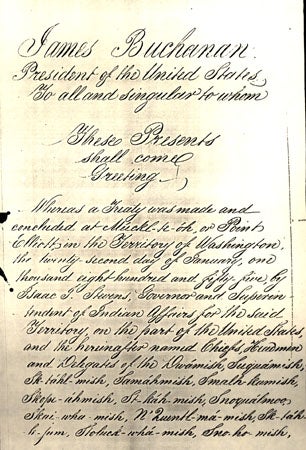 James Buchanan
President of the United States,
To all and singular to whom
These Presents
shall come
Greeting.
Whereas a Treaty was made and
concluded at Múckl-te-óh, or Point
Elliott, in the Territory of Washington,
the twenty-second day of January, one
thousand eight hundred and fifty five, by
Isaac I. Stevens, Governor and Superin
tendent of Indian Affairs for the said
Territory, on the part of the United States
and the hereinafter named Chiefs, Headmen
and Delegates of the Dwámish, Suquámish,
Sk-táhl-mish, Samáhmish, Smalh-kamish,
Skope-áhmish, St-káh-mish, Snoqualmoo,
Skai-wha-mish, N'Quentl-má-mish, Sk-táh-
le-jum, Stoluck-whá-mish, Sno-ho-mish,